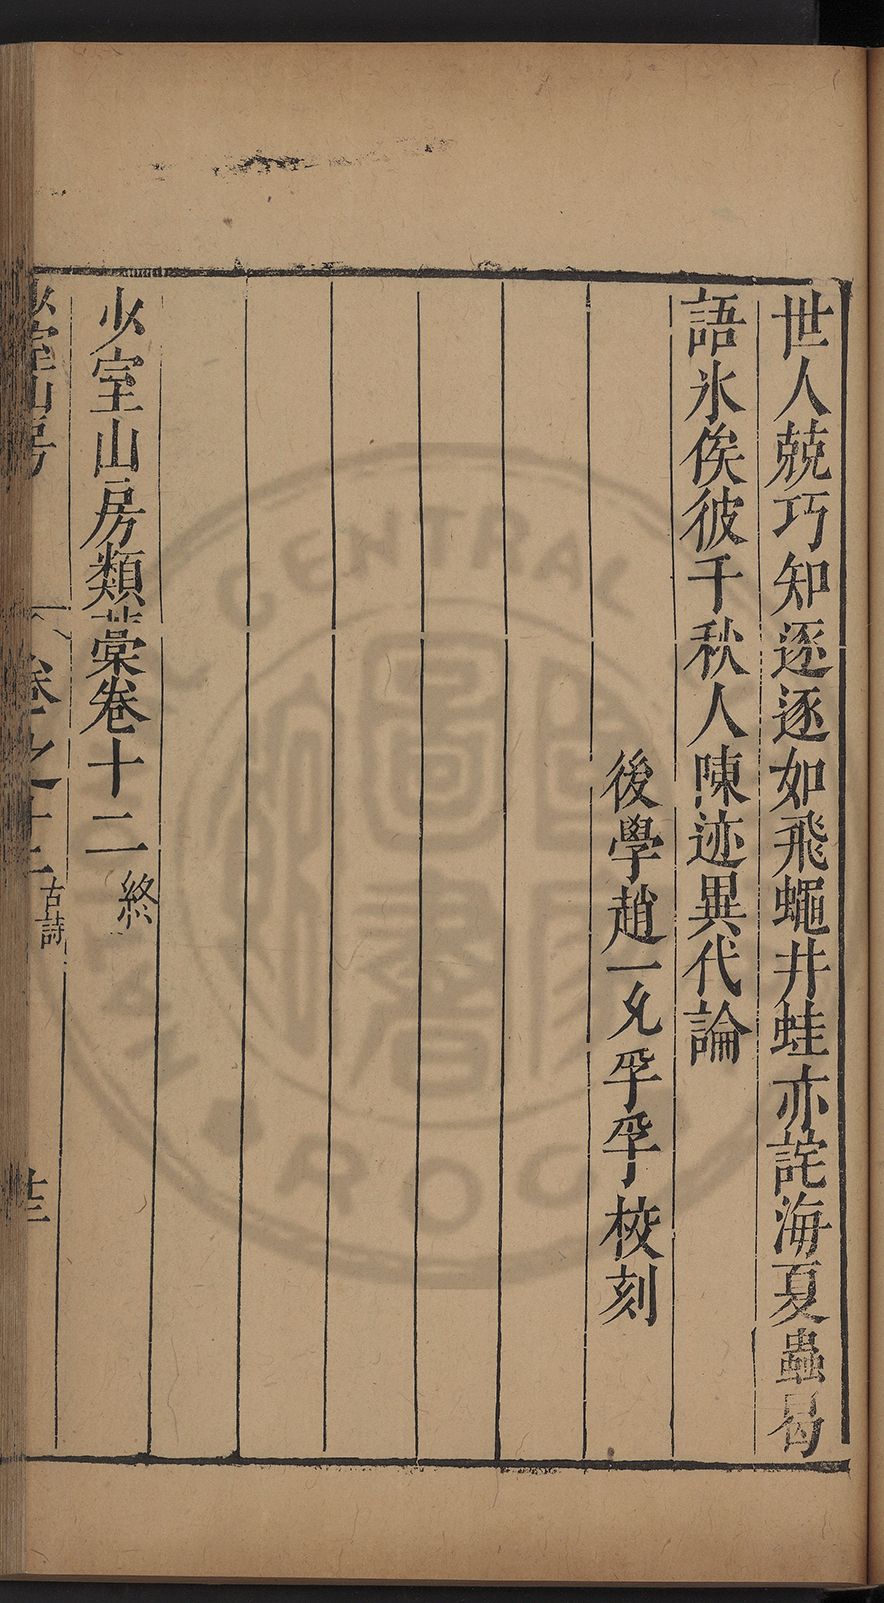 世人兢巧知逐逐如飛蠅井蛙亦詫海夏蟲曷
語氷俟彼千秋人陳迹異代論
後學趙一
校刻
少室山房類藁卷十二終
少室山房
卷之十二 古詩